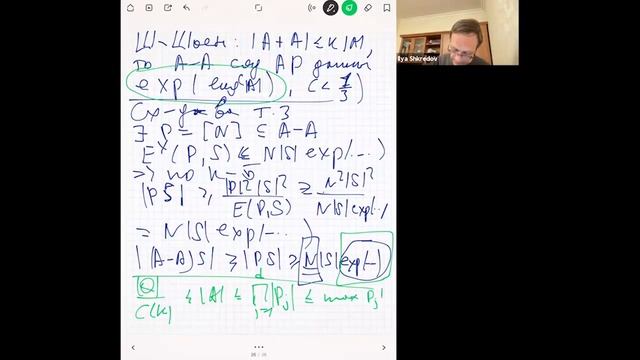 Ш-Шоен: |A+A| ≤ K|A|,
то A-A сод AP длины
exp( log^c|A|), c < 1/3)
Т. 3
∃ P = [N] ⊆ A-A
E^×(P,S) ≤ N|S| exp(...)
=> по К-Б
|PS| ≥ |P|²|S|² / E(P,S) ≥ N²|S|² / N|S| exp(..)
= N|S| exp(-... )
|(A-A)S| ≥ |PS| ≥ N|S| exp(-)
|Q| / C(K) ≤ |A| ≤ ∏_{j=1}^{d} |P_j| ≤ max P_j^d
Ilya Shkredov